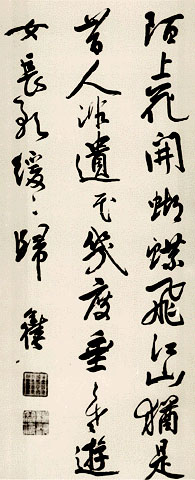 陌上花開蝴蝶飛江山猶是
昔人非遺民幾度垂〻老遊
女長歌緩〻歸